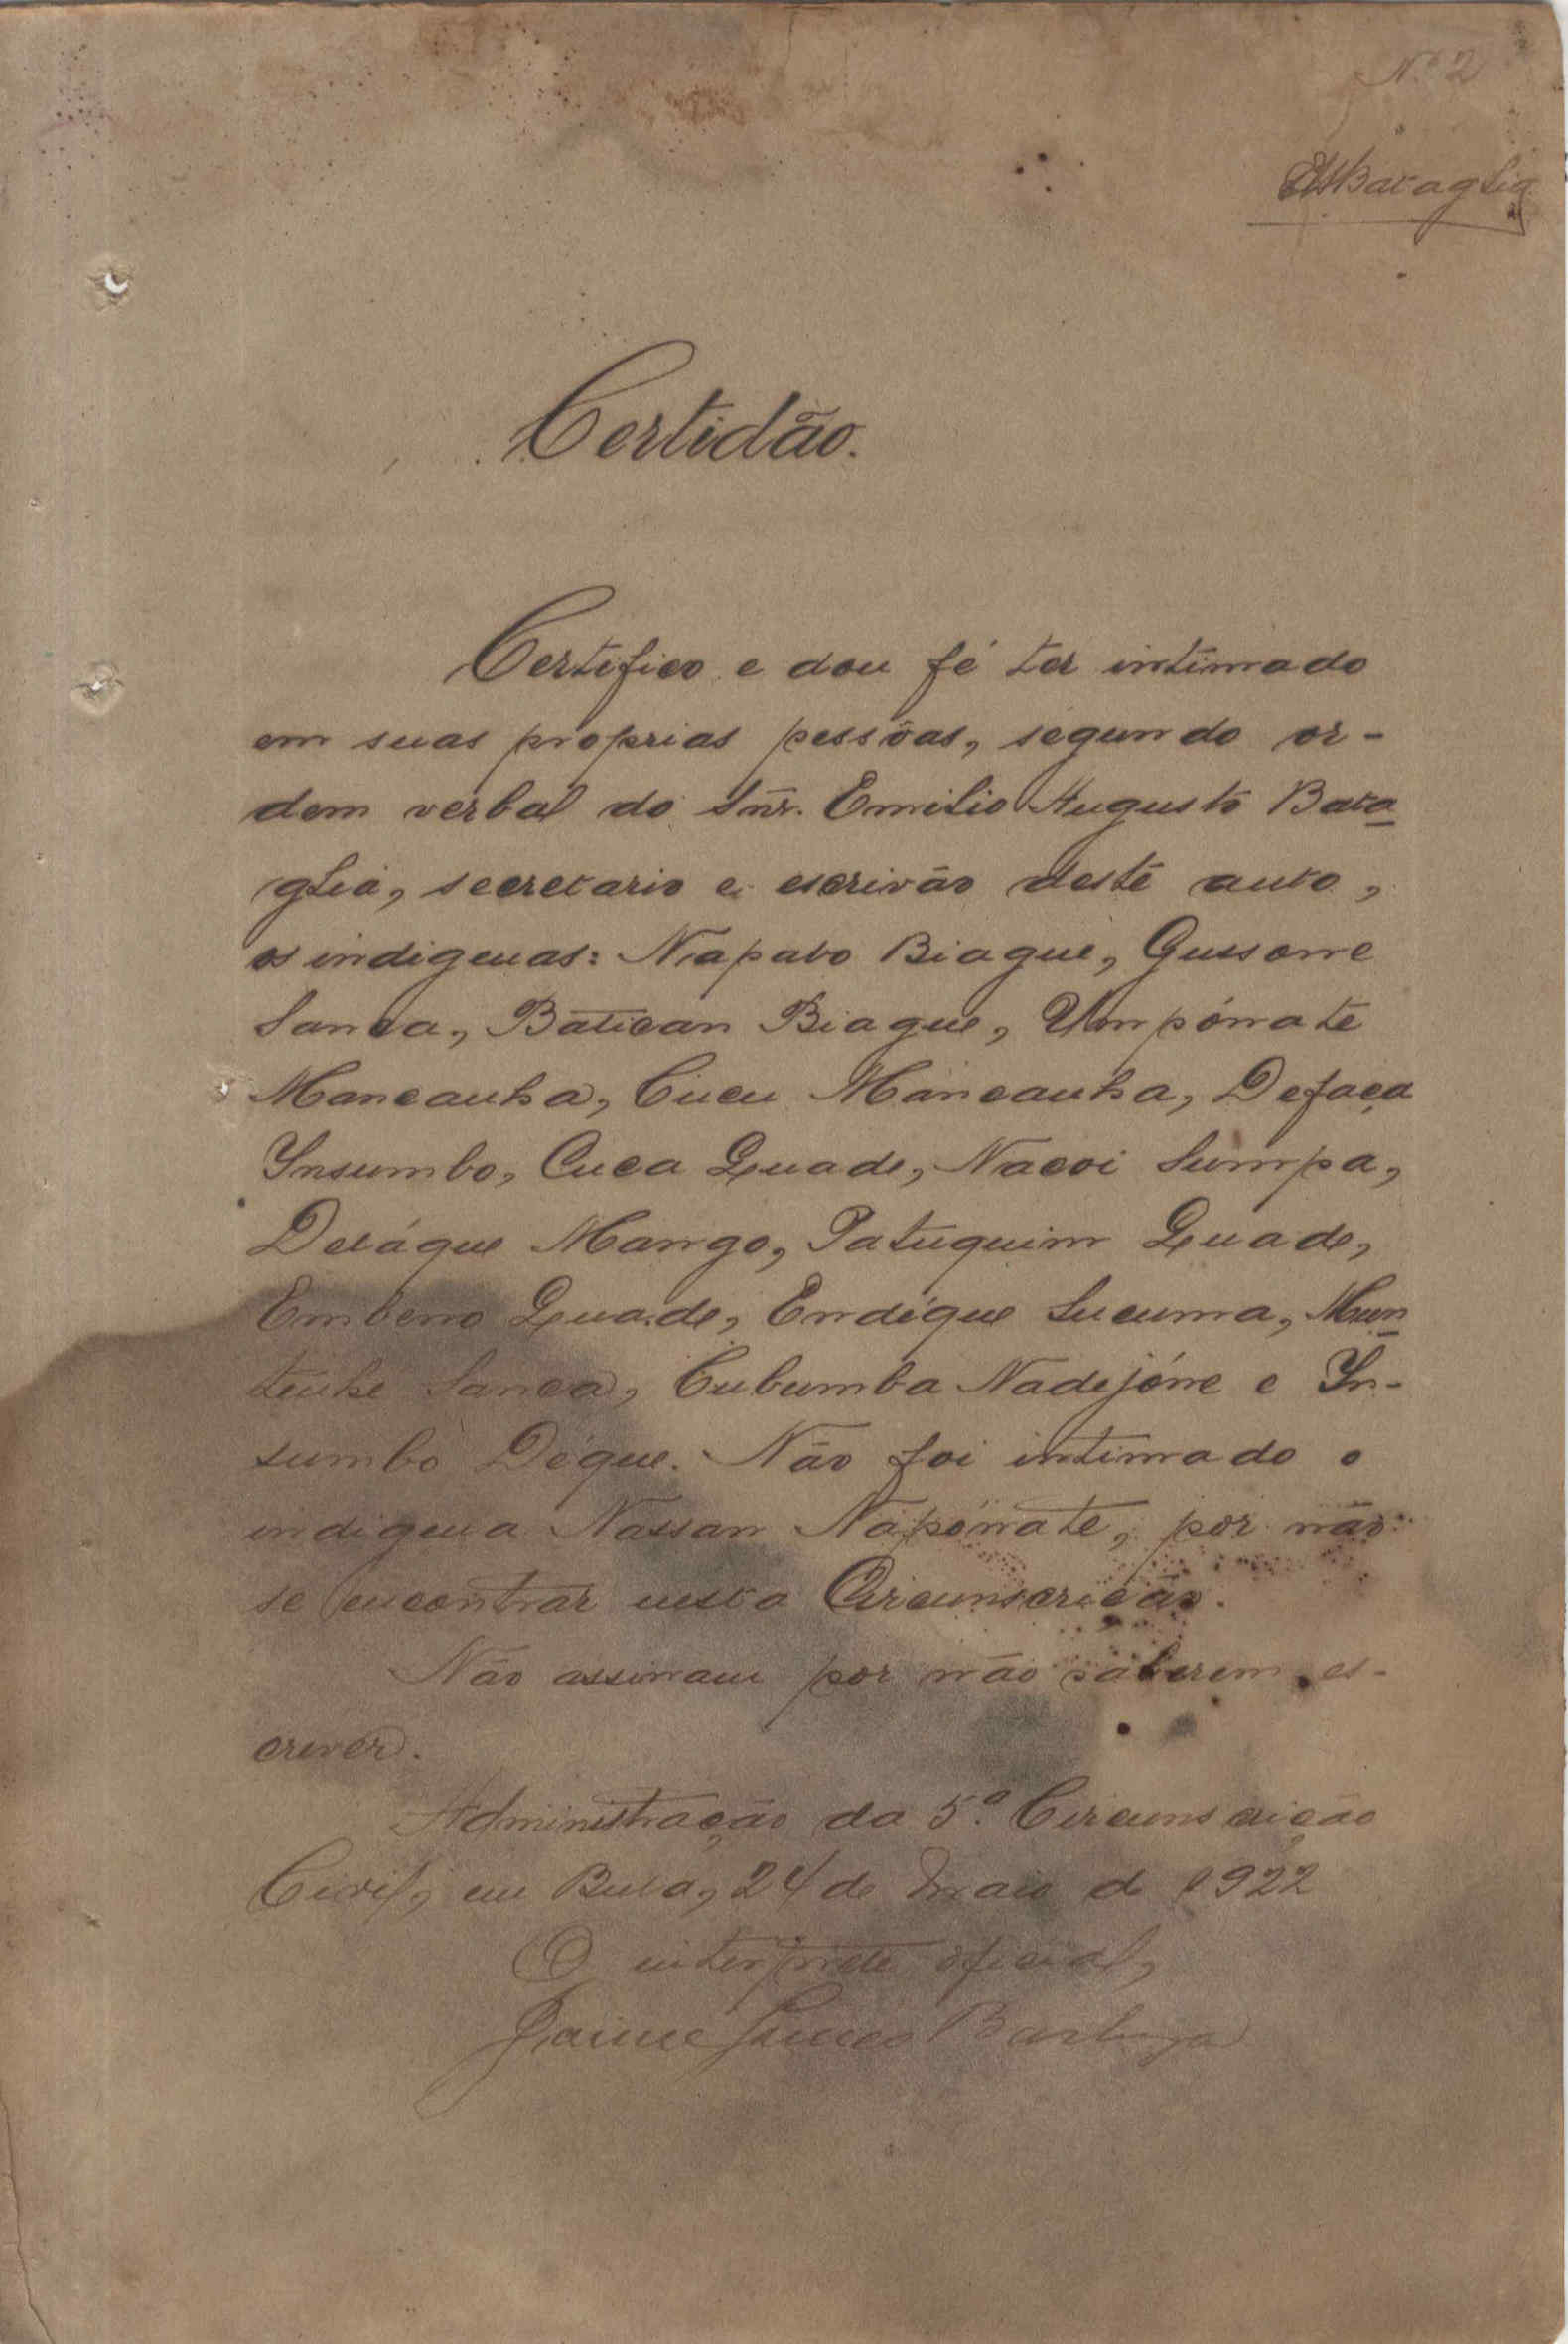 Nº 2
EABataglia
Certidão.
Certifico e dou fé ter intimado
em suas proprias pessôas, segundo or-
dem verbal do Snr. Emilio Augusto Bata-
glia, secretario e escrivão deste auto,
os indigenas: Napato Biague, Gussone
Sanca, Batican Biague, Umpónate
Mancanha, Cucu Mancanha, Defaca
Insumbo, Cuca Quade, Nacoi Sumpa,
Detáque Mango, Patuquim Quade,
Embeno Quade, Endéque Sucuma, Mun-
tenhe Sanca, Cubumba Nadejóne e In-
sumbo Déque. Não foi intimado o
indigena Nassan Napónate, por não
se encontrar nesta Circunscrição.
Não assinam por não saberem es-
crever.
Administração da 5.ª Circunscrição
Civil, em Bula, 24 de Maio de 1922
O interprete oficial,
Jaime